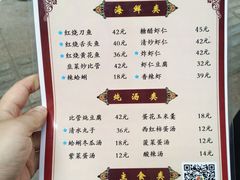 海鲜类
红烧刀鱼 42元 糖醋虾仁 45元
★红烧舌头鱼 40元 清炒虾仁
★红烧黄花鱼 36元 ★炸虾仁
韭菜炒比管 42元 虾仁豆腐 32元
★辣蛤蜊 18元 ★香辣虾 39元
炖汤类
比管炖豆腐 42元 黄花玉米羹 18元
★清水丸子 36元 西红柿蛋汤 12元
★蛤蜊冬瓜汤 18元 菠菜蛋汤 12元
紫菜蛋汤 12元 酸辣汤 14元
主食类